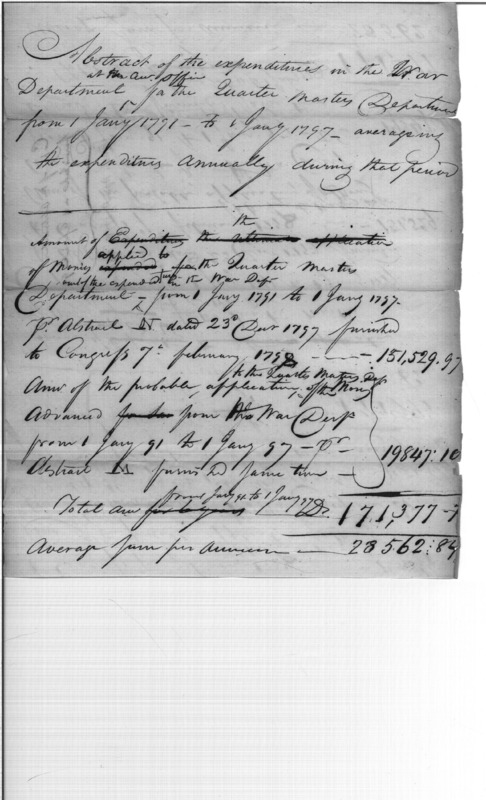 Abstract of the expenditures in the War
at the Acct. Office
Department for the Quarter Masters Departmen
from 1 Jany 1791 – to 1 Jany 1797 – averageing
the expenditures annually during that period
the
Amount of Expenditures the retained application
applied to
of Monies expended for the Quarter Masters
out of the expend in the War Dept
Department – from 1 Jany 1791 to 1 Jany 1797.
pr Abstract N dated 23d Decr 1797 furnished
to Congress 7th february 1798 – – – 151,529.97
to the Quarter Masters Dep
Amt of the probable application of the Money
Advanced from the War Dept
from 1 Jany 91 to 1 Jany 97 – pr
19847:10
Abstract N furnisd same time –
from 1 Jany 91 to 1 Jany 97
Total amt for 6 years Ds. 171,377-7
Average sum per annum – 28562:84